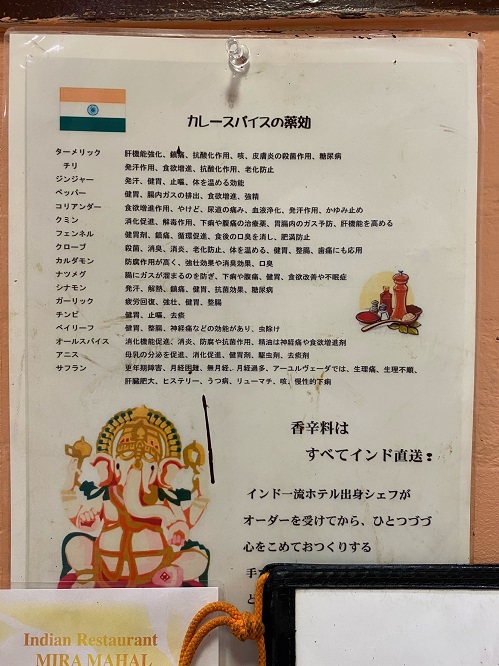 カレースパイスの薬効
ターメリック 肝機能強化、鎮痛、抗酸化作用、咳、皮膚炎の殺菌作用、糖尿病
チリ 発汗作用、食欲増進、抗酸化作用、老化防止
ジンジャー 発汗、健胃、止嘔、体を温める効能
ペッパー 健胃、腸内ガスの排出、食欲増進、強精
コリアンダー 食欲増進作用、やけど、尿道の痛み、血液浄化、発汗作用、かゆみ止め
クミン 消化促進、解毒作用、下痢や腹痛の治療薬、胃腸内のガス予防、肝機能を高める
フェンネル 健胃剤、鎮痛、循環促進、食後の口臭を消し、肥満防止
クローブ 殺菌、消臭、消炎、老化防止、体を温める、健胃、整腸、歯痛にも応用
カルダモン 防腐作用が高く、強壮効果や消臭効果、口臭
ナツメグ 腸にガスが溜まるのを防ぎ、下痢や腹痛、健胃、食欲改善や不眠症
シナモン 発汗、解熱、鎮痛、健胃、抗菌効果、糖尿病
ガーリック 疲労回復、強壮、健胃、整腸
チンピ 健胃、止嘔、去痰
ベイリーフ 健胃、整腸、神経痛などの効能があり、虫除け
オールスパイス 消化機能促進、消炎、防腐や抗菌作用、精油は神経痛や食欲増進剤
アニス 母乳の分泌を促進、消化促進、健胃剤、駆虫剤、去痰剤
サフラン 更年期障害、月経困難、無月経、月経過多、アーユルヴェーダでは、生理痛、生理不順、
肝臓肥大、ヒステリー、うつ病、リューマチ、咳、慢性的下痢
香辛料は
すべてインド直送!
インド一流ホテル出身シェフが
オーダーを受けてから、ひとつづつ
心をこめておつくりする
手
と
Indian Restaurant
MIRA MAHAL